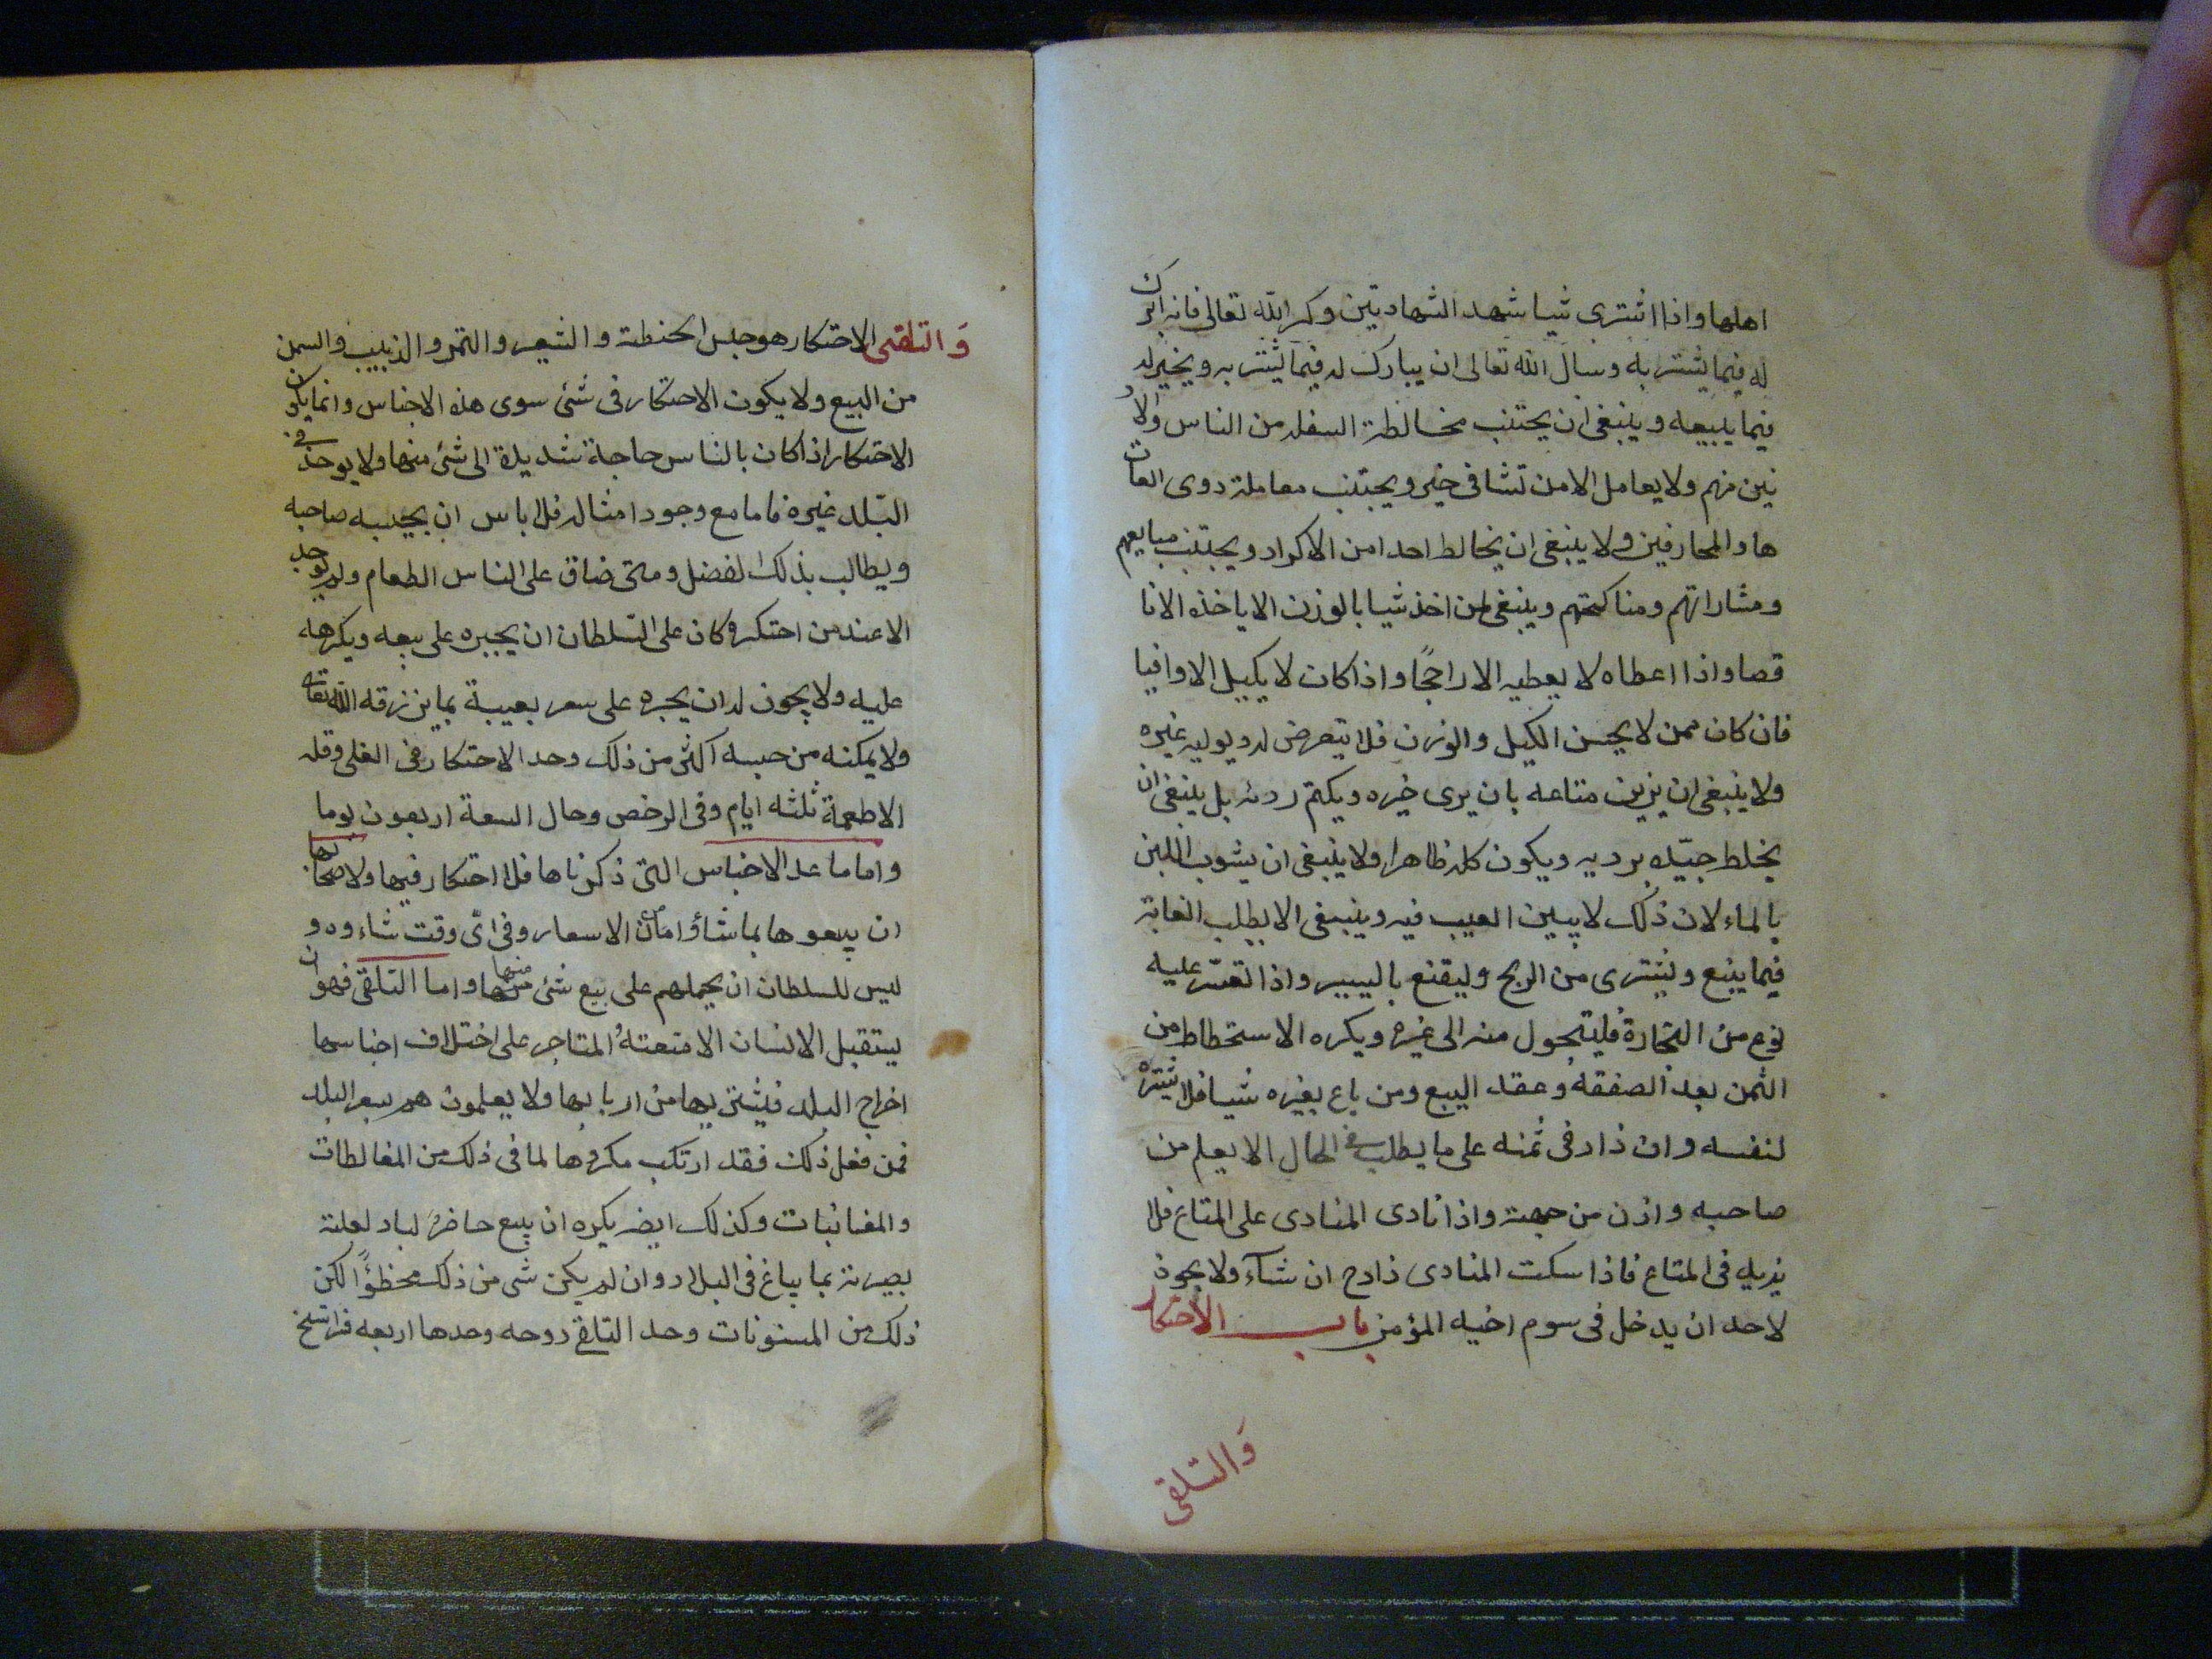 اهلها واذا اشترى شيا شهد الشهادتين وكبر الله تعالى فانه ابرك
له فيما يشتربه وسال الله تعالى ان يبارك له فيما يشتربه ويخير له
فيما يبيعه وينبغى ان يجتنب مخالطة السفله من الناس والاد
نين منهم ولا يعامل الا من نشا فى خير ويجتنب معاملة ذوى العات
ها والمحارفين ولا ينبغى ان يخالط احدا من الاكراد ويجتنب مبايعهم
ومشاراتهم ومناكحتهم وينبغى لمن اخذ شيا بالوزن الا ياخذه الا نا
قصا واذا اعطاه لا يعطيه الا راجحًا واذا كان لا يكيل الا وافيا
فان كان ممن لا يحسن الكيل والوزن فلا يتعرض له ويوليه غيره
ولا ينبغى ان يزين متاعه بان يرى خيره ويكتم رديه بل ينبغى ان
يخلط جيّده برديه ويكون كله ظاهرا ولا ينبغى ان يشوب اللبن
بالماء لان ذلك لا يبين العيب فيه وينبغى الا يطلب الغاية
فيما يبيع ويشترى من الربح وليقنع باليسير واذا تعسّر عليه
نوع من التجارة فليتحول منه الى غيره ويكره الاستحطاط من
الثمن بعد الصفقه وعقد البيع ومن باع بغيره شيا فلا يشتره
لنفسه وان زاد فى ثمنه على ما يطلب فى الحال الا بعلم من
صاحبه واذن من جهته واذا نادى المنادى على المتاع فلا
يزيد فى المتاع فاذا سكت المنادى زاده ان شآء ولا يجوز
لاحد ان يدخل فى سوم اخيه المؤمن باب الاحتكار
وَالتلقى
وَالتلقى الاحتكار هو حبس الحنطة والشعير والتمر والزبيب والسمن
من البيع ولا يكون الاحتكار فى شئ سوى هذه الاجناس وانما يكون
الاحتكار اذا كان بالناس حاجة شديدة الى شئ منها ولا يوجد فى
البلد غيره فاما مع وجود امثاله فلا باس ان يحبسه صاحبه
ويطالب بذلك الفضل ومتى ضاق على الناس الطعام ولم يوجد
الا عند من احتكره كان على السّلطان ان يجبره على بيعه ويكرهه
عليه ولا يجوز له ان يجبره على سعر بعينة بما يرزقه الله تعالى
ولا يمكنه من حبسه اكثر من ذلك وحد الاحتكار فى الغلى وقله
الاطعمة ثلثه ايام وفى الرخص وحال السعة اربعون يوما
واما ما عدا الاجناس التى ذكرناها فلا احتكار فيها ولاصحابها
ان يبيعوها بما شاؤا من الاسعار وفى اى وقت شاءوه و
ليس للسلطان ان يحملهم على بيع شئ منها واما التلقى فهو ان
يستقبل الانسان الامتعتهُ المتاجر على اختلاف اجناسها
اخراج البلد فيشتريها من اربابها ولا يعلمون هم بسعر البلد
فمن فعل ذلك فقد ارتكب مكروها لما فى ذلك من المغالطات
والمغانبات وكذلك ايضا يكره ان يبيع حاضر لباد لعلة
بصيرته بما يباع فى البلاد وان لم يكن شى من ذلك محظوًا لكن
ذلك من المسنونات وحد التلقى روحه وحدها اربعه فراسخ